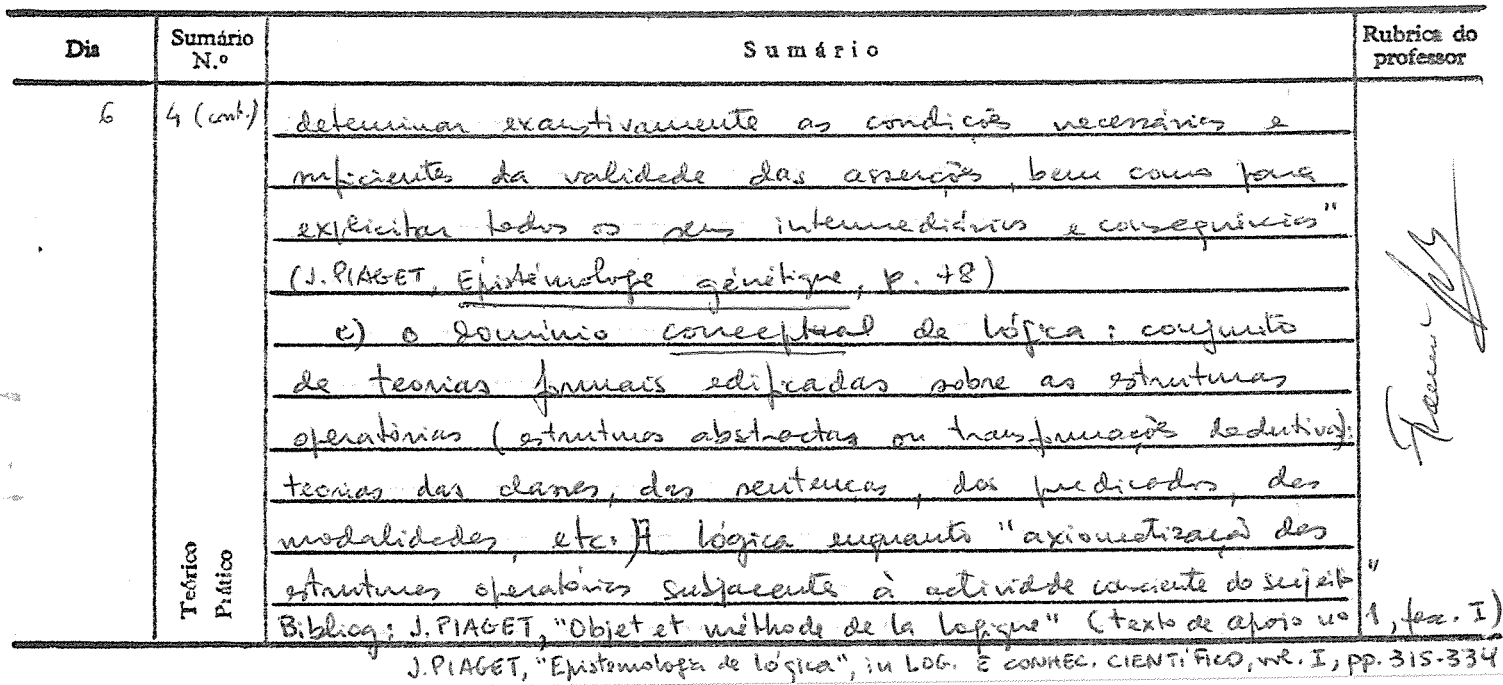 Dia Sumário N.º Sumário Rubrica do professor
6 4 (cont.) determinar exaustivamente as condições necessárias e
suficientes da validade das asserções, bem como para
explicitar todos os seus intermediários e consequências"
(J. PIAGET, Epistémologie génétique, p. 78)
c) o domínio conceptual da lógica: conjunto
de teorias formais edificadas sobre as estruturas
operatórias (estruturas abstractas ou transformações dedutivas:
teorias das classes, das sentenças, dos predicados, das
modalidades, etc.) A lógica enquanto "axiomatização das
estruturas operatórias subjacentes à actividade consciente do sujeito"
Bibliog: J. PIAGET, "Objet et méthode de la logique" (texto de apoio nº 1, fasc. I)
J. PIAGET, "Epistemologia da lógica", in LOG. E CONHEC. CIENTÍFICO, vol. I, pp. 315-334
Teórico
Prático